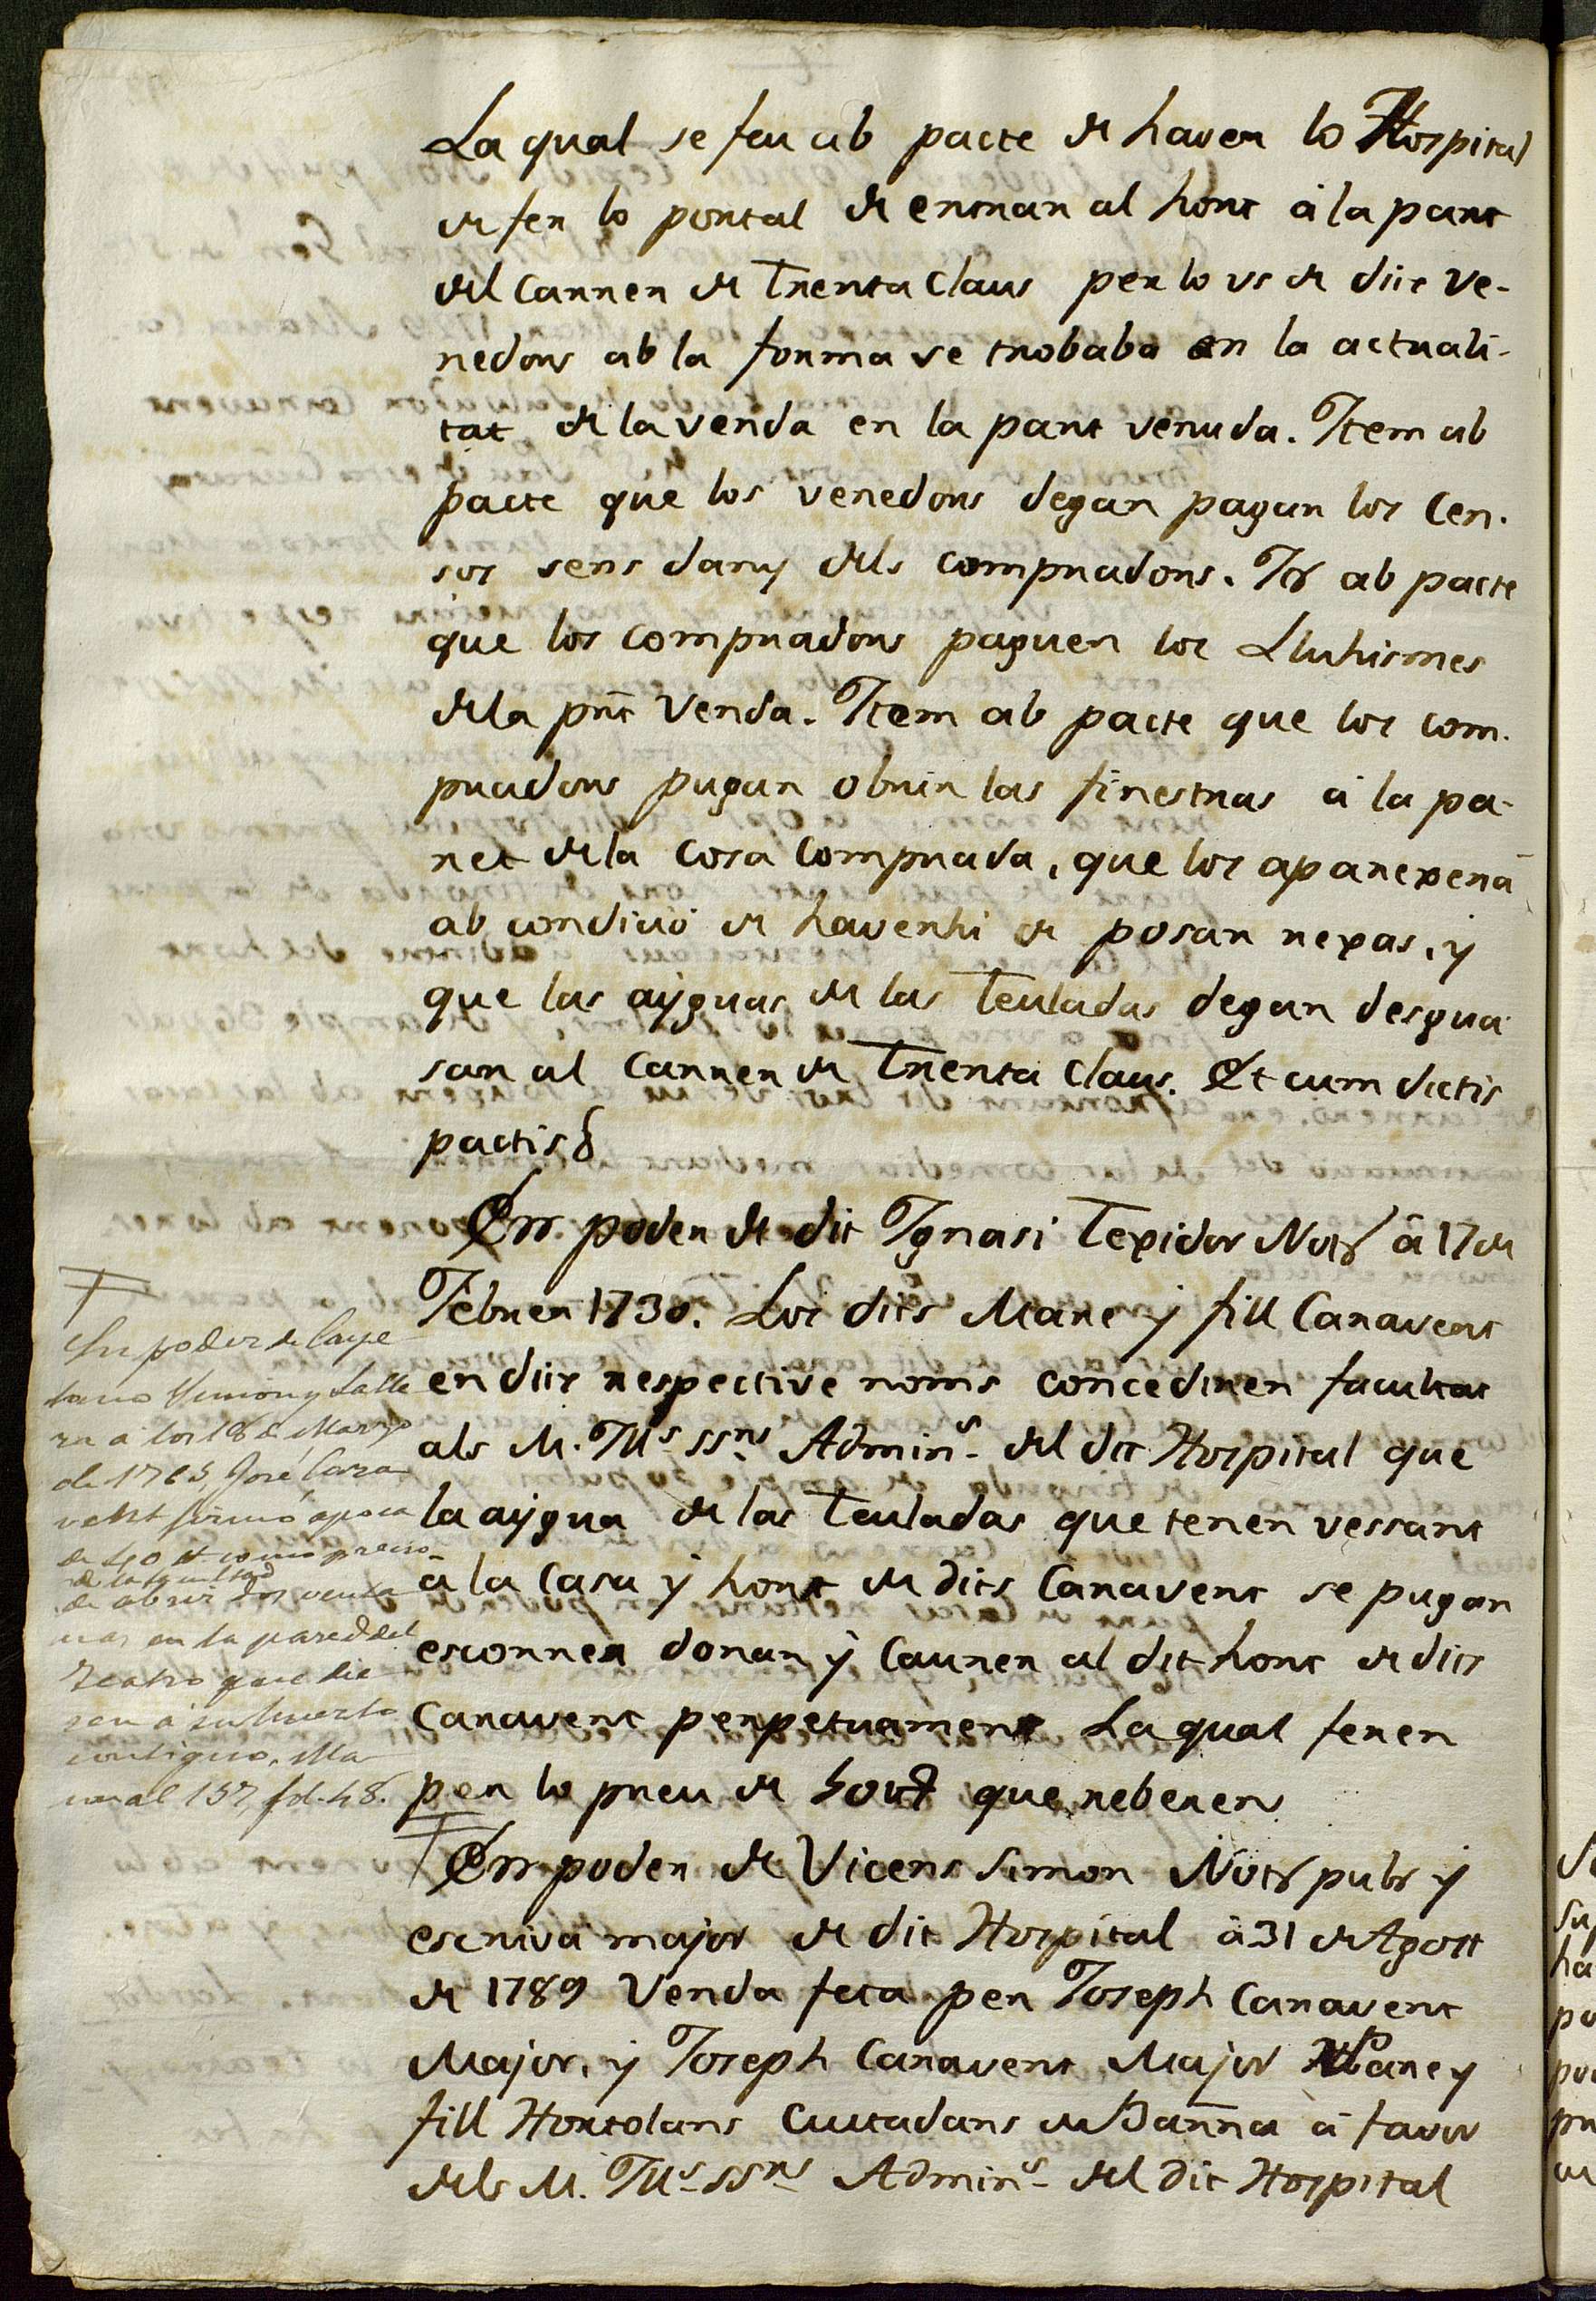 La qual se feu ab pacte de haver lo Hospital
de fer lo portal de entrar al hort á la part
del Carrer de Trenta Claus per lo us de dits Ve-
nedors ab la forma se trobaba en la actuali-
tat de la venda en la part venuda. Item ab
pacte que los venedors degan pagar los Cen-
sos sens dany dels compradors. It ab pacte
que los compradors paguen los Lluhismes
de la pnt Venda. Item ab pacte que los com-
pradors pugan obrir las finestras á la pa-
ret de la Cosa Comprada, que los aparexerá
ab condició de haverhi de posar rexas, y
que las ayguas de las Teuladas degan desgua-
sar al Carrer de Trenta Claus. Et cum dictis
pactis &
En poder de dit Ignasi Texidor Not á 17 de
Febrer 1730. Los dits Mare y fill Canavent
en dits respective noms concediren facultat
als M. Ills ssrs Admins del dit Hospital que
la aygua de las Teuladas que tenen vessant
á la Casa y hort de dits Canavent se pugan
escorrer donar y Caurer al dit hort de dits
Canavent perpetuament La qual feren
per lo preu de que reberen
En poder de Vicens Simon Not pub y
escrivá major de dit Hospital á 31 de Agost
de 1789 Venda feta per Joseph Canavent
Major, y Joseph Canavent Major Pare y
fill Hortolans Ciutadans de Barna á favor
dels M. Ills ssrs Admins del dit Hospital
En poder de Caye
tano Simon y
ra á los 18 de Marzo
de 1765, José Cana
vent firmó apoca
de como precio
de la facultad
de abrir dos venta
nas en la pared del
Teatro que
sen á su huerto
contiguo, Ma
nual 157, fol. 48.